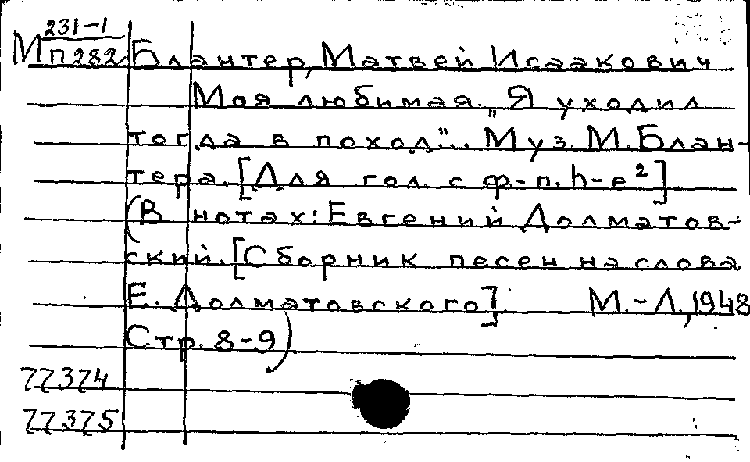 231-1
М п282 Блантер, Матвей Исаакович
Моя любимая. „Я уходил
тогда в поход". Муз. М. Блан-
тера. [Для гол. с ф-п. h-e²]
(В нотах: Евгений Долматов-
ский. [Сборник песен на слова
Е. Долматовского]. М.-Л., 1948
Стр. 8-9)
77374
77375